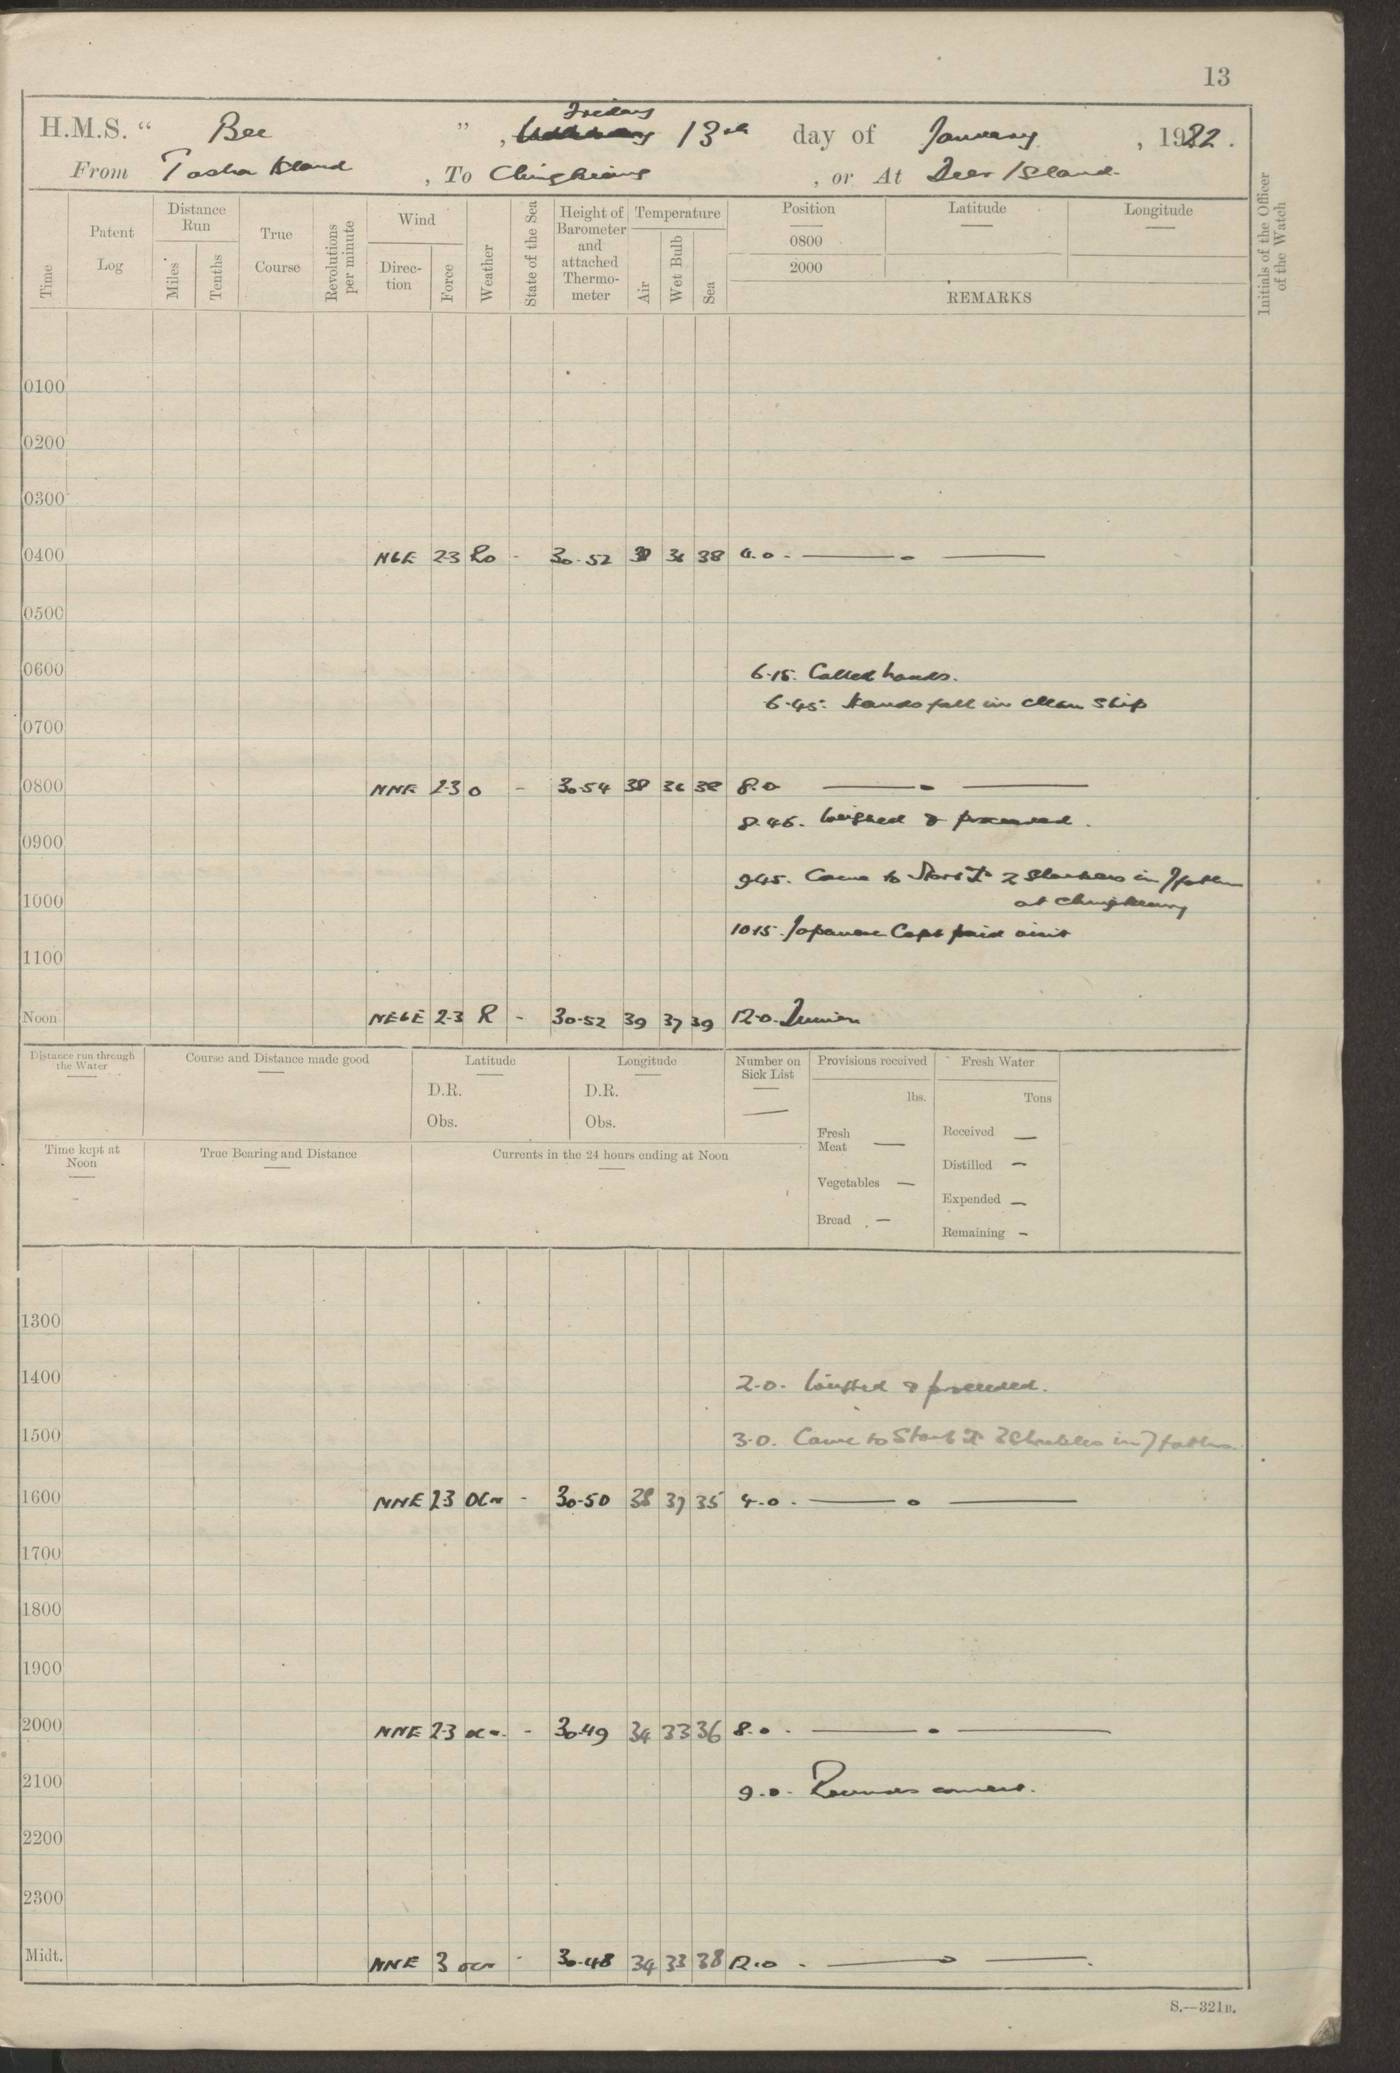 13
H.M.S. " Bee ", Friday 13th day of January, 1922.
From Tasha Island, To Chingkiang, or At Deer Island.
Time
Patent Log
Distance Run
Miles
Tenths
True Course
Revolutions per minute
Wind
Direction
Force
Weather
State of the Sea
Height of Barometer and attached Thermometer
Temperature
Air
Wet Bulb
Sea
Position
0800
2000
Latitude
Longitude
REMARKS
Initials of the Officer of the Watch
0100
0200
0300
0400 NbE 2-3 Ro - 30.52 36 38 4.0. — . —
0500
0600
6.15. Called hands.
6.45. Hands fall in clean ship
0700
0800 NNE 2-3 o - 30.54 38 36 38 8.0 — . —
8.45. Weighed & proceeded.
0900
9.45. Came to Starb'd 2 shackles in 7 fathm
1000 at Chingkiang
10.15. Japanese Capt paid visit
1100
Noon NEbE 2-3 R - 30.52 39 37 39 12.0.
Distance run through the Water
Course and Distance made good
Latitude
D.R.
Obs.
Longitude
D.R.
Obs.
Number on Sick List
—
Provisions received
lbs.
Fresh Meat —
Vegetables —
Bread —
Fresh Water
Tons
Received —
Distilled —
Expended —
Remaining —
Time kept at Noon
True Bearing and Distance
Currents in the 24 hours ending at Noon
1300
1400
2.0. Weighed & proceeded.
1500
3.0. Came to Starb'd 2 shackles in 7 fathms
1600 NNE 2-3 ocm - 30.50 38 37 35 4.0. — . —
1700
1800
1900
2000 NNE 2-3 ocm - 30.49 34 33 36 8.0. — . —
2100
9.0. Rounds correct.
2200
2300
Midt. NNE 3 ocm - 30.48 34 33 38 12.0. — —
S.—321B.